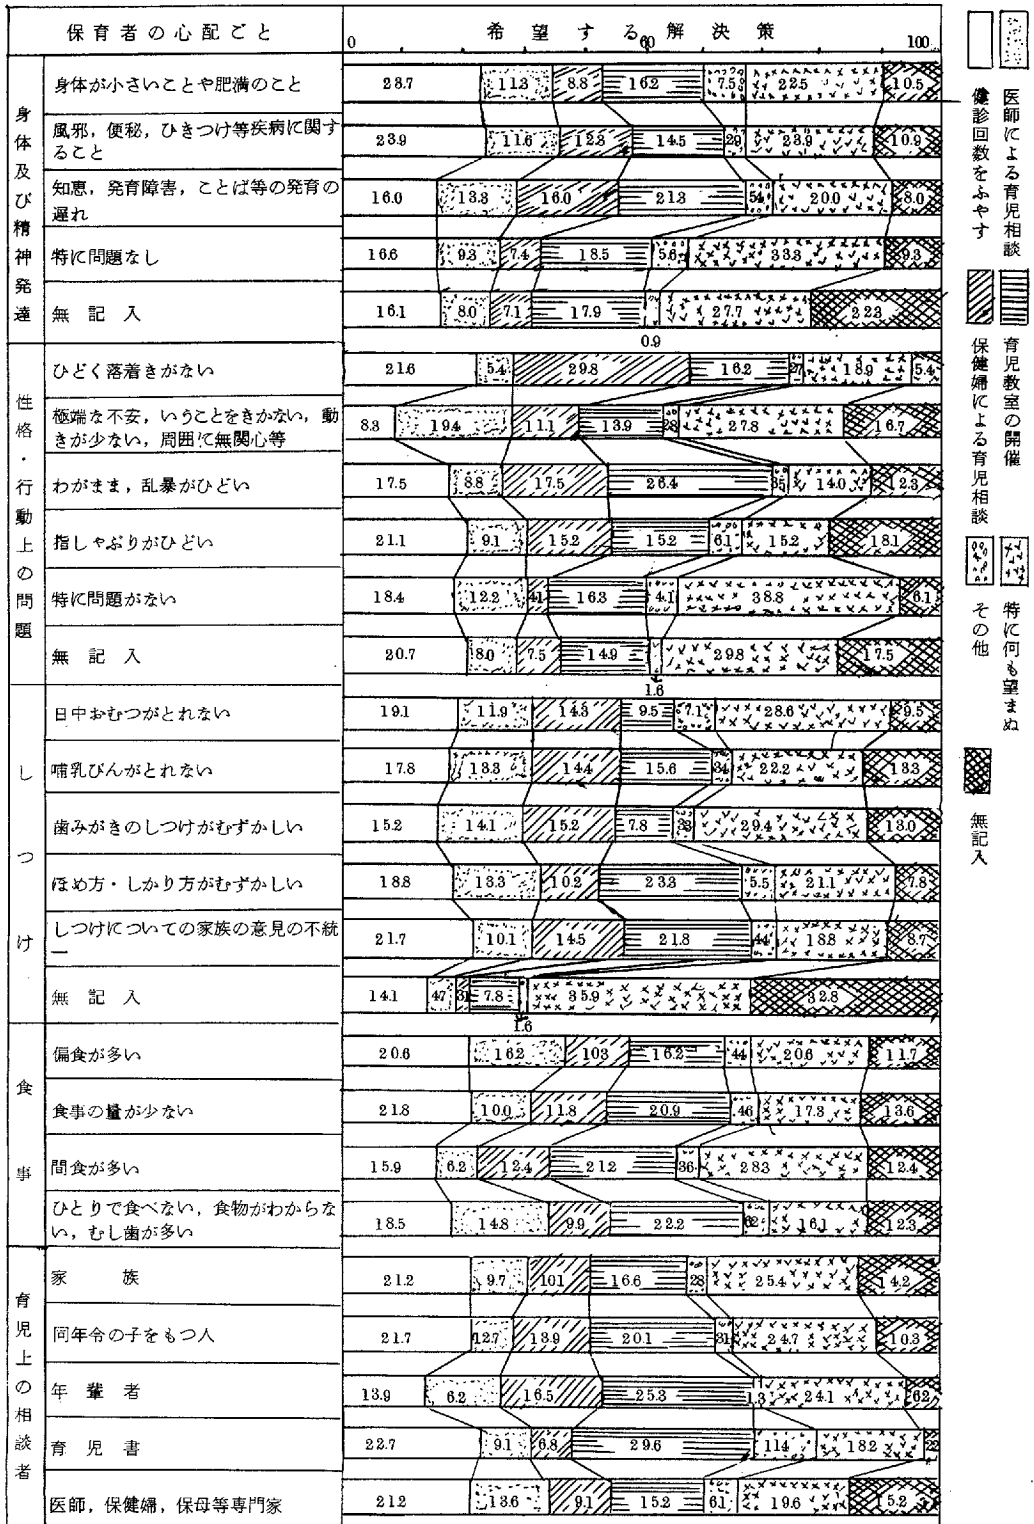 保育者の心配ごと
希望する解決策
0 60 100
身体及び精神発達
身体が小さいことや肥満のこと
23.7 11.3 8.8 16.2 7.5 22.5 10.5
風邪，便秘，ひきつけ等疾病に関す
ること
23.9 11.6 12.3 14.5 2.9 23.9 10.9
知恵，発育障害，ことば等の発育の
遅れ
16.0 13.3 16.0 21.3 5.4 20.0 8.0
特に問題なし
16.6 9.3 7.4 18.5 5.6 33.3 9.3
無記入
16.1 8.0 7.1 17.9 27.7 22.3
0.9
性格・行動上の問題
ひどく落着きがない
21.6 5.4 29.8 16.2 2.7 18.9 5.4
極端な不安，いうことをきかない，動
きが少ない，周囲に無関心等
8.3 19.4 11.1 13.9 2.8 27.8 16.7
わがまま，乱暴がひどい
17.5 8.8 17.5 26.4 3.5 14.0 12.3
指しゃぶりがひどい
21.1 9.1 15.2 15.2 6.1 15.2 18.1
特に問題がない
18.4 12.2 4.1 16.3 4.1 38.8 6.1
無記入
20.7 8.0 7.5 14.9 29.8 17.5
1.6
しつけ
日中おむつがとれない
19.1 11.9 14.3 9.5 7.1 28.6 9.5
哺乳びんがとれない
17.8 13.3 14.4 15.6 3.4 22.2 13.3
歯みがきのしつけがむずかしい
15.2 14.1 15.2 7.8 3.3 29.4 13.0
ほめ方・しかり方がむずかしい
18.8 13.3 10.2 23.3 5.5 21.1 7.8
しつけについての家族の意見の不統
一
21.7 10.1 14.5 21.8 4.4 18.8 8.7
無記入
14.1 4.7 3.1 7.8 35.9 32.8
1.6
食事
偏食が多い
20.6 16.2 10.3 16.2 4.4 20.6 11.7
食事の量が少ない
21.8 10.0 11.8 20.9 4.6 17.3 13.6
間食が多い
15.9 6.2 12.4 21.2 3.6 28.3 12.4
ひとりで食べない，食物がわからな
い，むし歯が多い
18.5 14.8 9.9 22.2 6.2 16.1 12.3
育児上の相談者
家族
21.2 9.7 10.1 16.6 2.8 25.4 14.2
同年令の子をもつ人
21.7 12.7 13.9 20.1 3.1 24.7 10.3
年輩者
13.9 6.2 16.5 25.3 1.3 24.1 6.2
育児書
22.7 9.1 6.8 29.6 11.4 18.2 2.2
医師，保健婦，保母等専門家
21.2 13.6 9.1 15.2 6.1 19.6 15.2
医師による育児相談
健診回数をふやす
育児教室の開催
保健婦による育児相談
特に何も望まぬ
その他
無記入